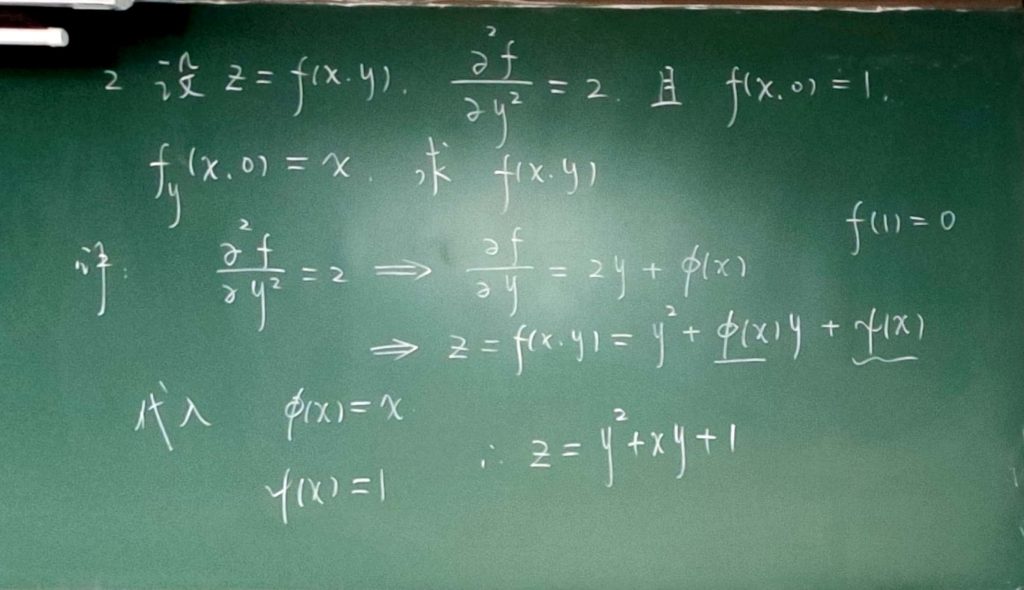 2 设 z = f(x.y). ∂²f/∂y² = 2. 且 f(x.0) = 1.
f_y(x.0) = x. 求 f(x.y)
f(1) = 0
译: ∂²f/∂y² = 2 ⟹ ∂f/∂y = 2y + φ(x)
⟹ z = f(x.y) = y² + φ(x)y + ψ(x)
代入 φ(x) = x
ψ(x) = 1
∴ z = y² + xy + 1